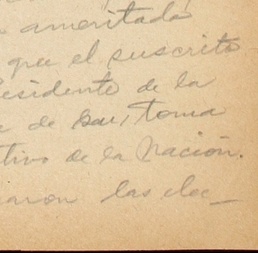 ameritada
que el suscrito
residente de la
de Gau, toma
tivo de la Nación.
aron las elec_